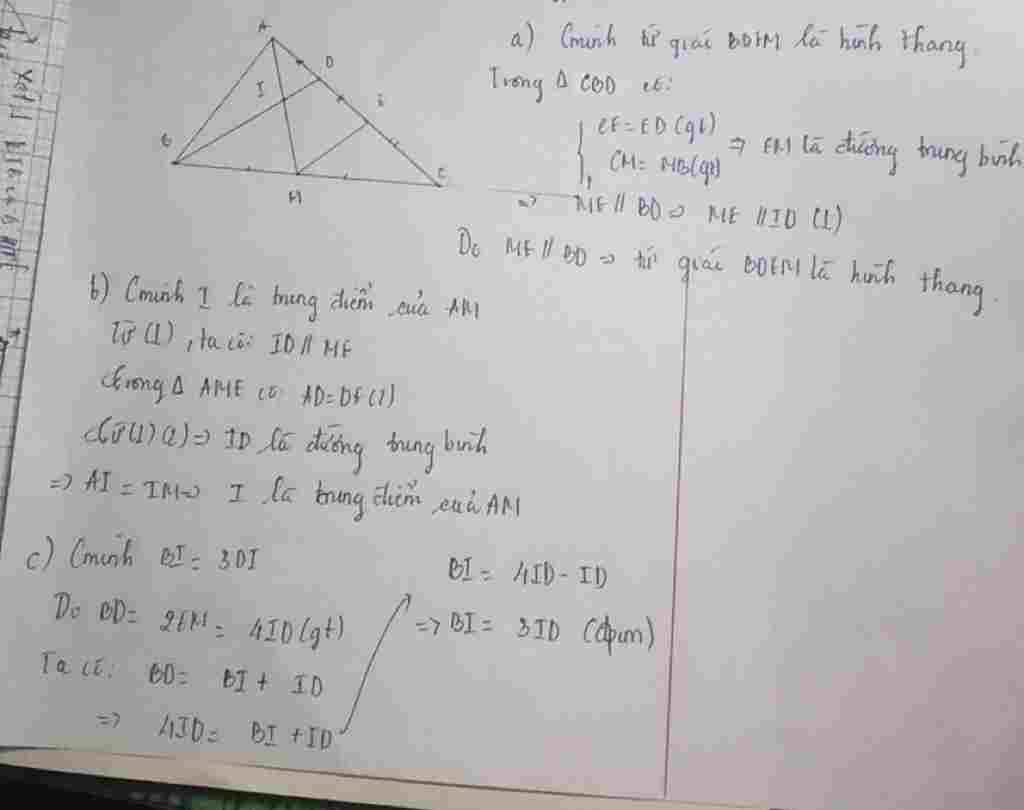 A
D
I
E
B
M
C
a) Cminh tứ giác BDEM là hình thang.
Trong Δ CBD có:
CE = ED (gt)
CM = MB (gt)
=> EM là đường trung bình
=> ME // BD => ME // ID (1)
Do ME // BD => tứ giác BDEM là hình thang.
b) Cminh I là trung điểm của AM
Từ (1), ta có: ID // ME
Trong Δ AME có AD = DE (2)
Từ (1) (2) => ID là đường trung bình
=> AI = IM => I là trung điểm của AM
c) Cminh BI = 3DI
Do BD = 2EM = 4ID (gt)
Ta có: BD = BI + ID
=> 4ID = BI + ID
BI = 4ID - ID
=> BI = 3ID (đpcm)